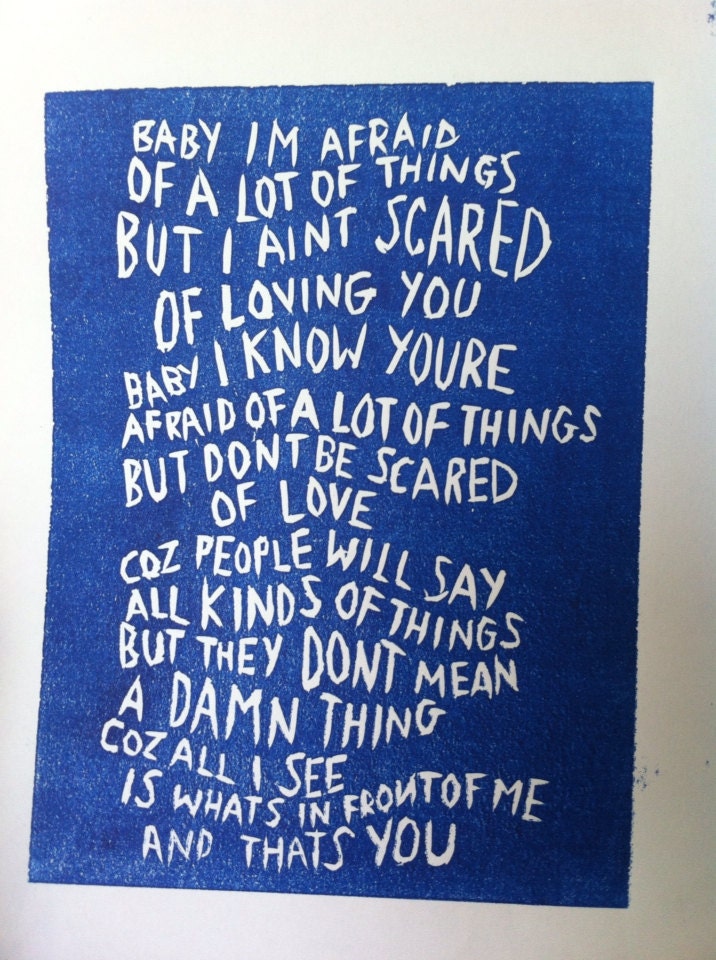 BABY IM AFRAID
OF A LOT OF THINGS
BUT I AINT SCARED
OF LOVING YOU
BABY I KNOW YOURE
AFRAID OF A LOT OF THINGS
BUT DONT BE SCARED
OF LOVE
COZ PEOPLE WILL SAY
ALL KINDS OF THINGS
BUT THEY DONT MEAN
A DAMN THING
COZ ALL I SEE
IS WHATS IN FRONT OF ME
AND THATS YOU